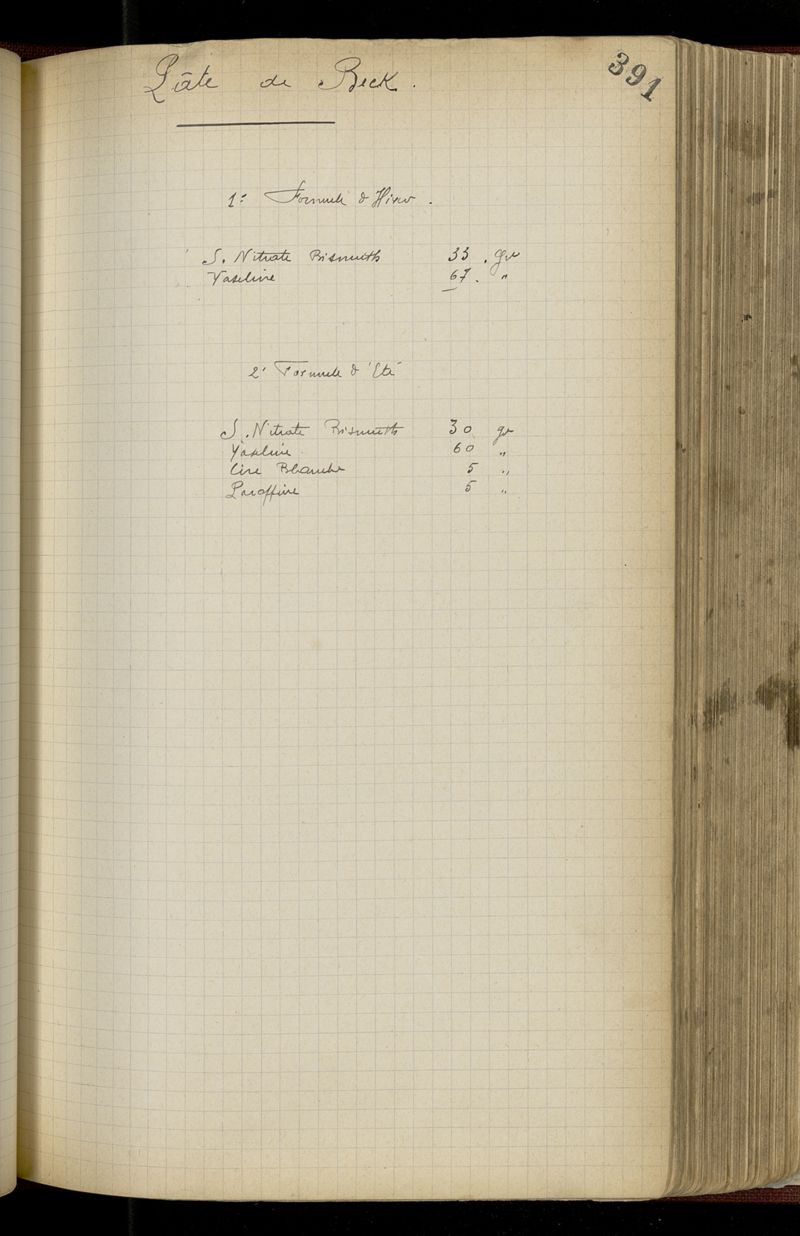 391
Pâte de Beck.
1° Formule d'Hiver.
S. Nitrate Bismuth 33. gr
Vaseline 67. "
2° Formule d'Eté
S. Nitrate Bismuth 30 gr
Vaseline 60 "
Cire Blanche 5 "
Paraffine 5 "